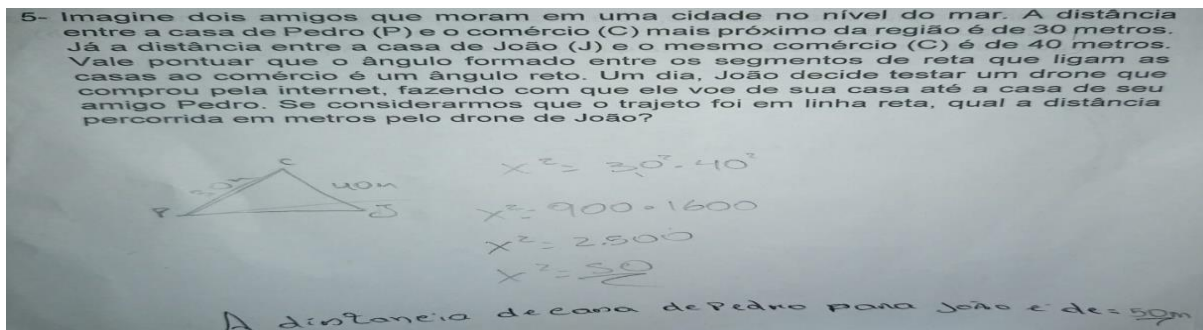 5- Imagine dois amigos que moram em uma cidade no nível do mar. A distância
entre a casa de Pedro (P) e o comércio (C) mais próximo da região é de 30 metros.
Já a distância entre a casa de João (J) e o mesmo comércio (C) é de 40 metros.
Vale pontuar que o ângulo formado entre os segmentos de reta que ligam as
casas ao comércio é um ângulo reto. Um dia, João decide testar um drone que
comprou pela internet, fazendo com que ele voe de sua casa até a casa de seu
amigo Pedro. Se considerarmos que o trajeto foi em linha reta, qual a distância
percorrida em metros pelo drone de João?
C
40m
P
J
x² = 30² · 40²
x² = 900 · 1600
x² = 2.500
x² = 50
A distancia de casa de Pedro para João é de = 50m